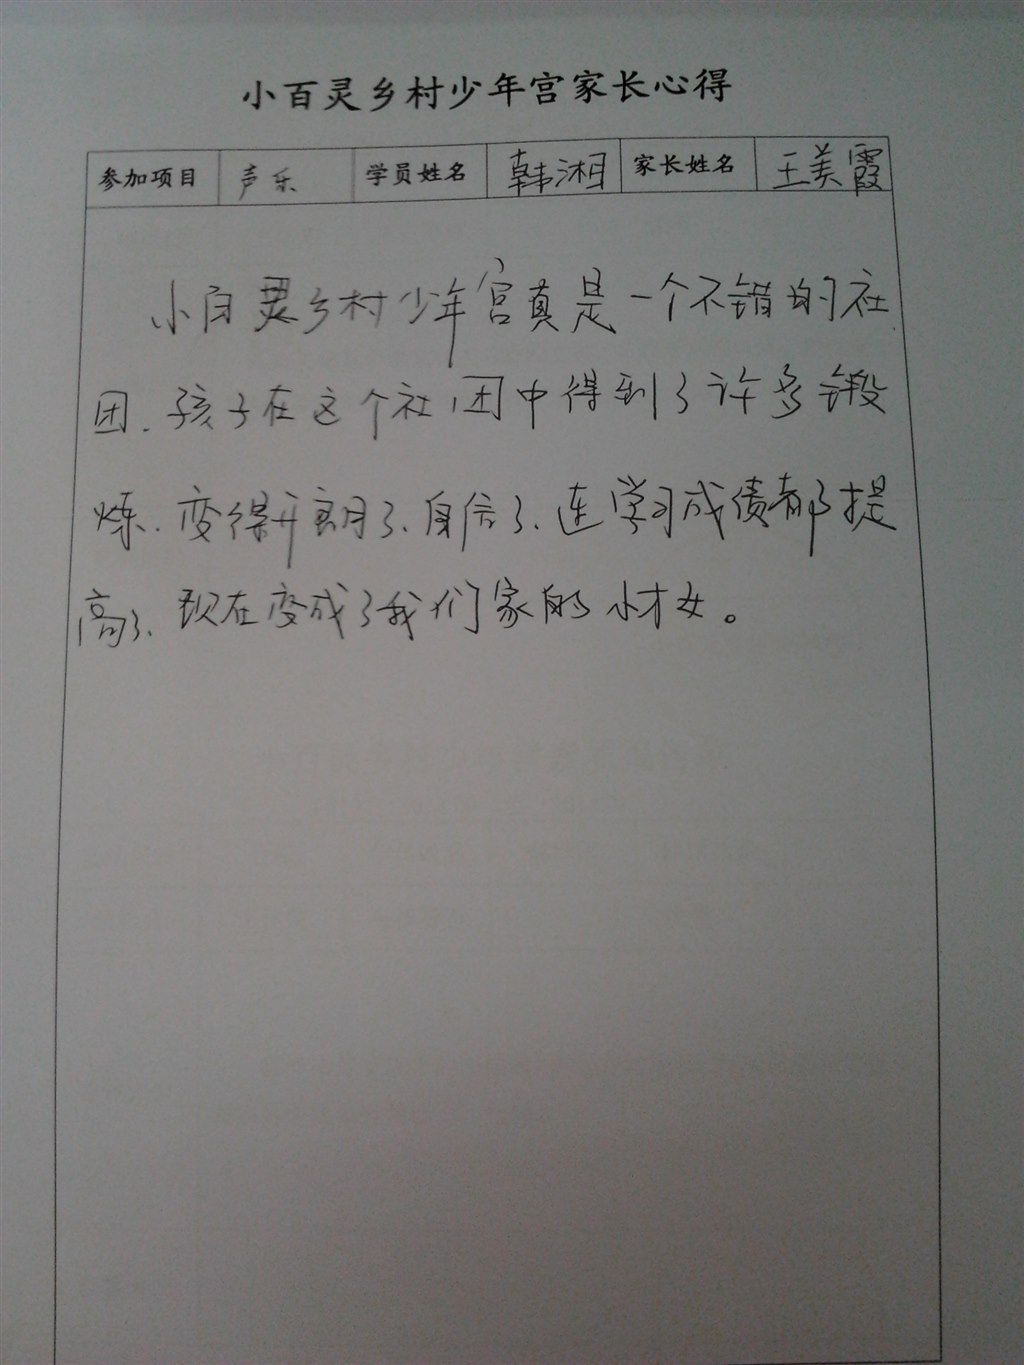 小百灵乡村少年宫家长心得
参加项目 声乐 学员姓名 韩湘 家长姓名 王美霞
小百灵乡村少年宫真是一个不错的社
团.孩子在这个社团中得到了许多锻
炼.变得开朗了、自信了、连学习成绩都提
高了、现在变成了我们家的小才女。